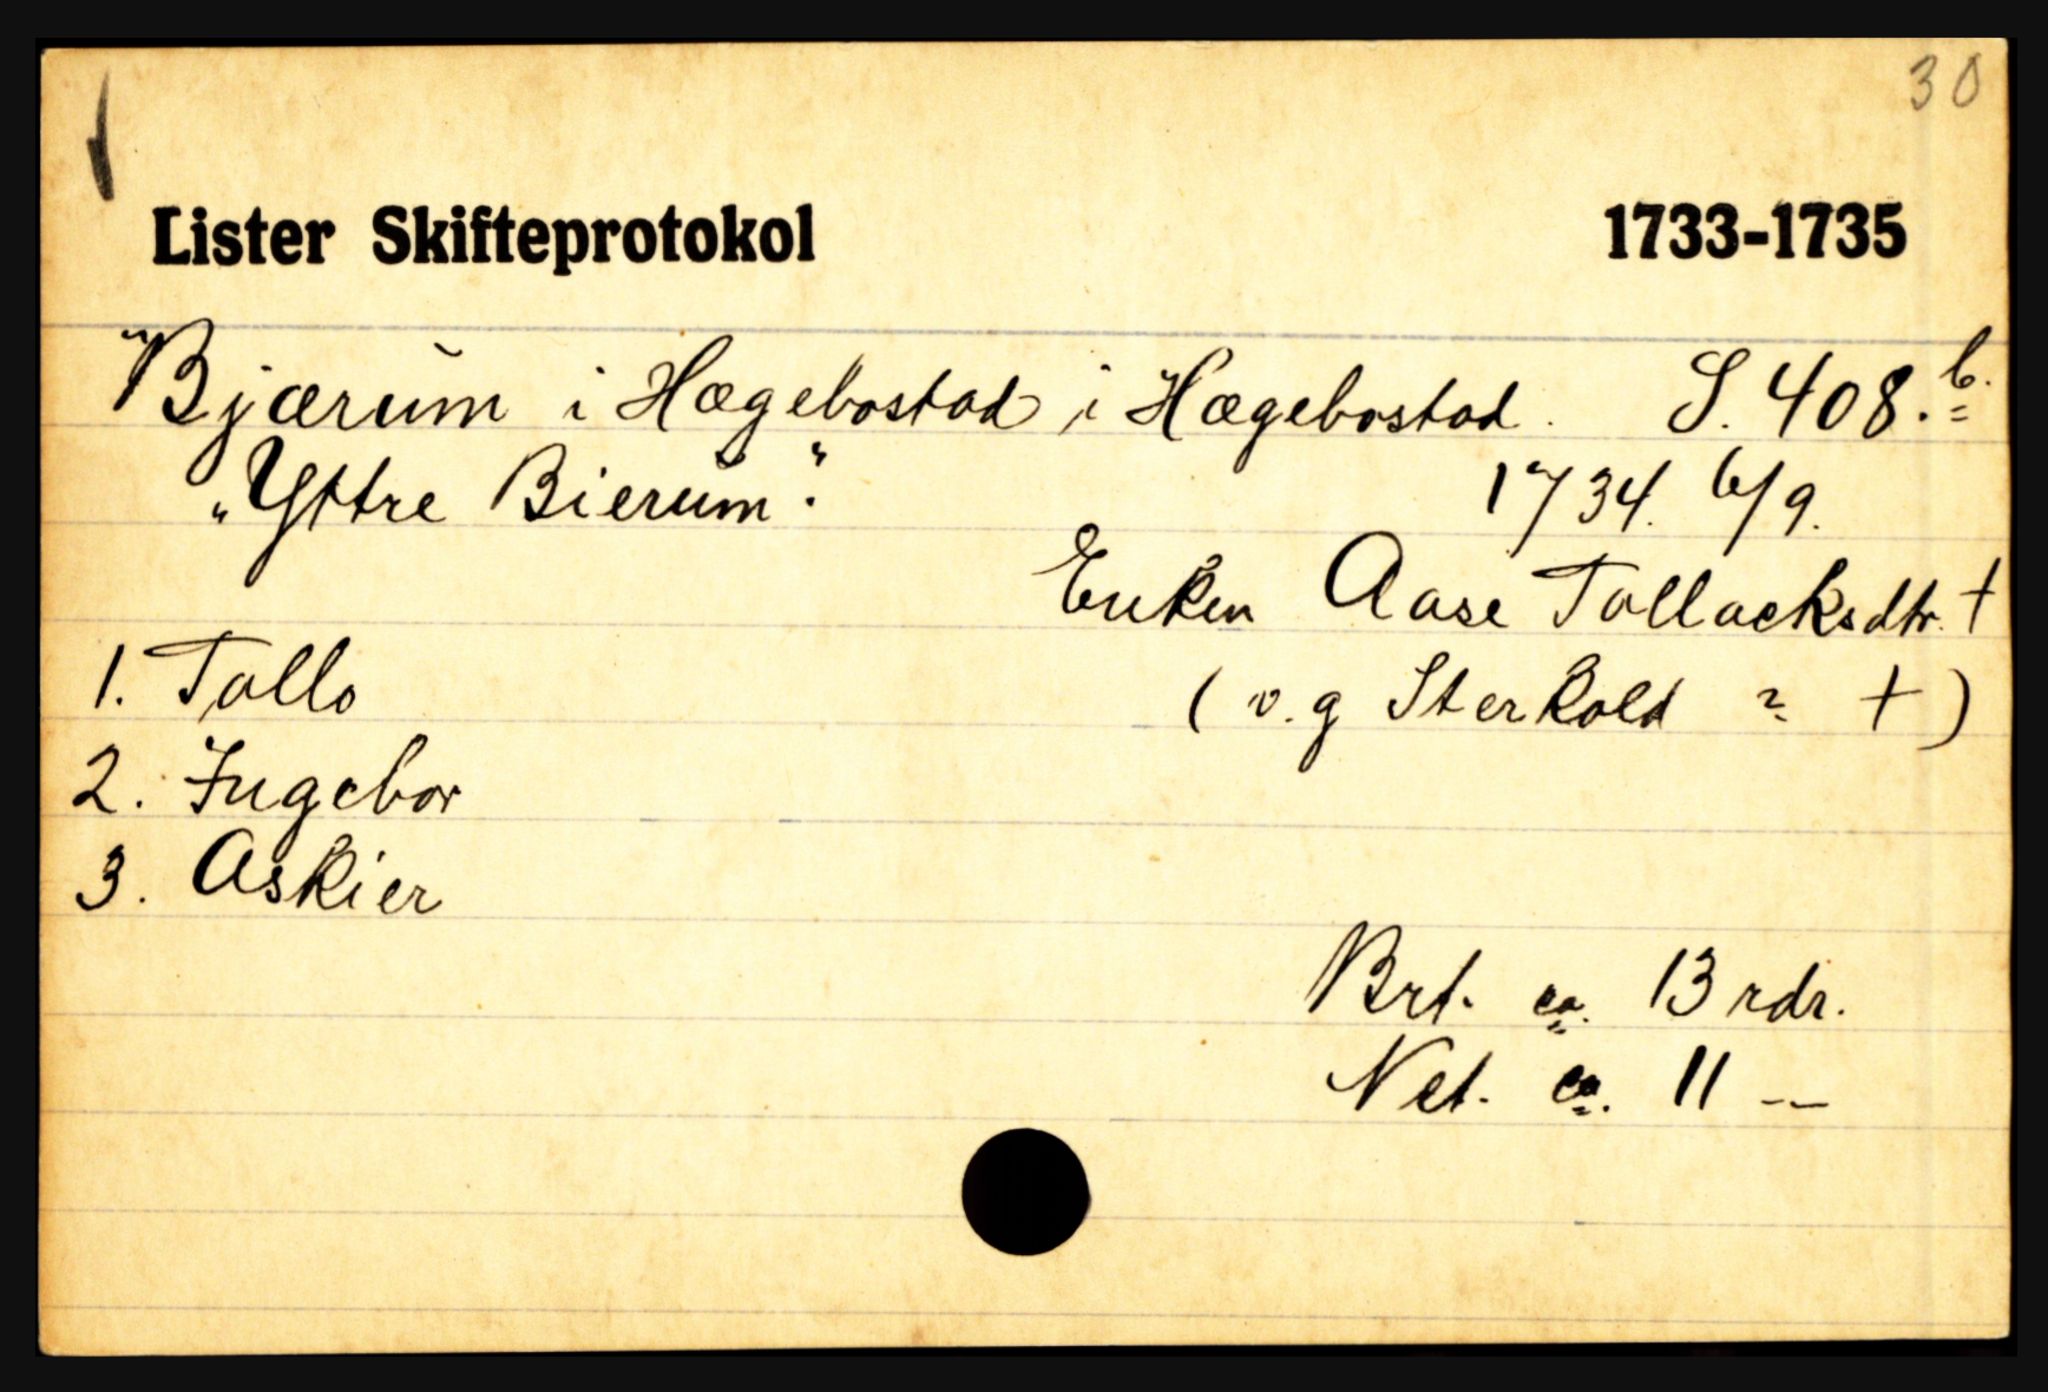 30
Lister Skifteprotokol 1733-1735
Bjærum i Hægebostad i Hægebostad. S. 408.b.
„Yttre Bierum". 1734. 6/9.
Enken Aase Tollacksdtr. †
1. Tollo (v. g Sterkold ? †)
2. Ingebor
3. Askier
Brt. ca. 13 rdr.
Net. ca. 11 —